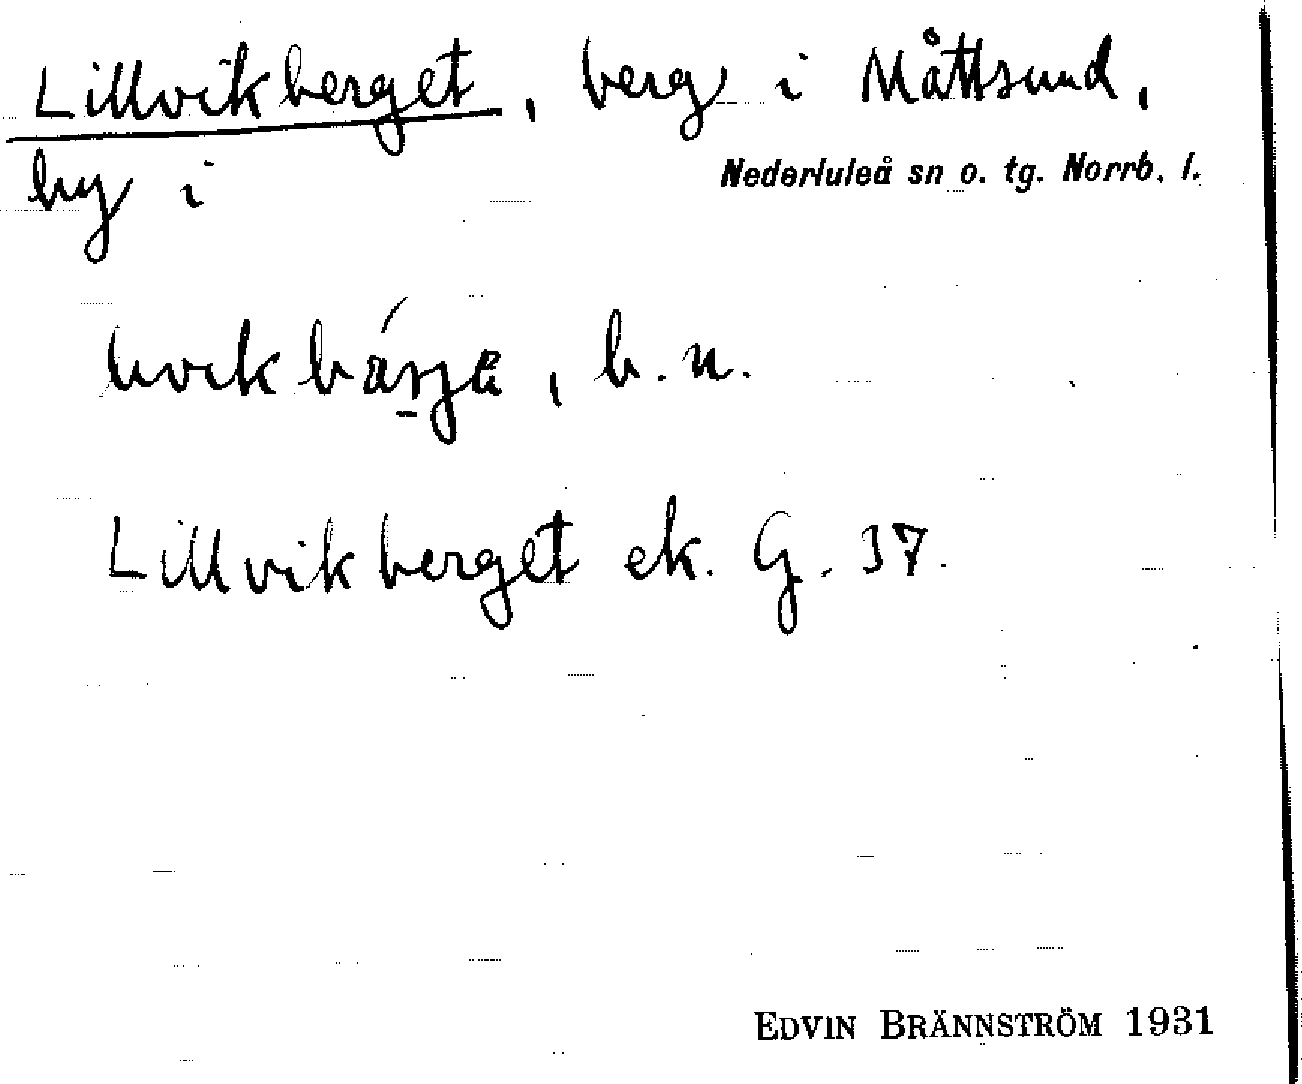 Lillvikberget, berg i Måttsund,
by i Nederluleå sn o. tg. Norrb. l.
b. n.
Lillvikberget ek. G. 37.
EDVIN BRÄNNSTRÖM 1931